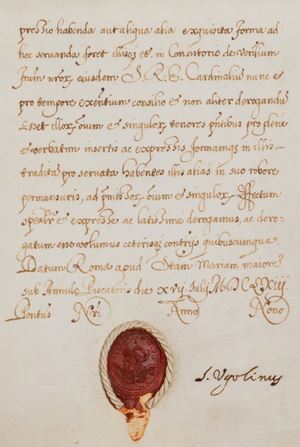 pressio habenda aut aliqua alia exquisita forma ad
hoc servanda foret illisq; et in Consistorio de Venlium
frum nrox eiusdem S. R. E. Cardinalium nunc et
pro tempore exntium consilio et non aliter derogandu
esset illox, oium et singulox tenores pntibus pro plene
et verbatim insertis ac expressis formamq; in illis
tradita pro servata habentes illis alias in suo robore
permansuris, ad pmissox, oium et singulox Effectum
spealr et expresse ac latissime derogamus, ac dero-
gatum esse volumus ceterisq; contriis quibuscumque
Datum Romæ apud Stam Mariam maiore
sub Annulo Piscatoris die xvij Iulij MDCLXIII
Pontus Nri Anno Nono
S. Ugolinus